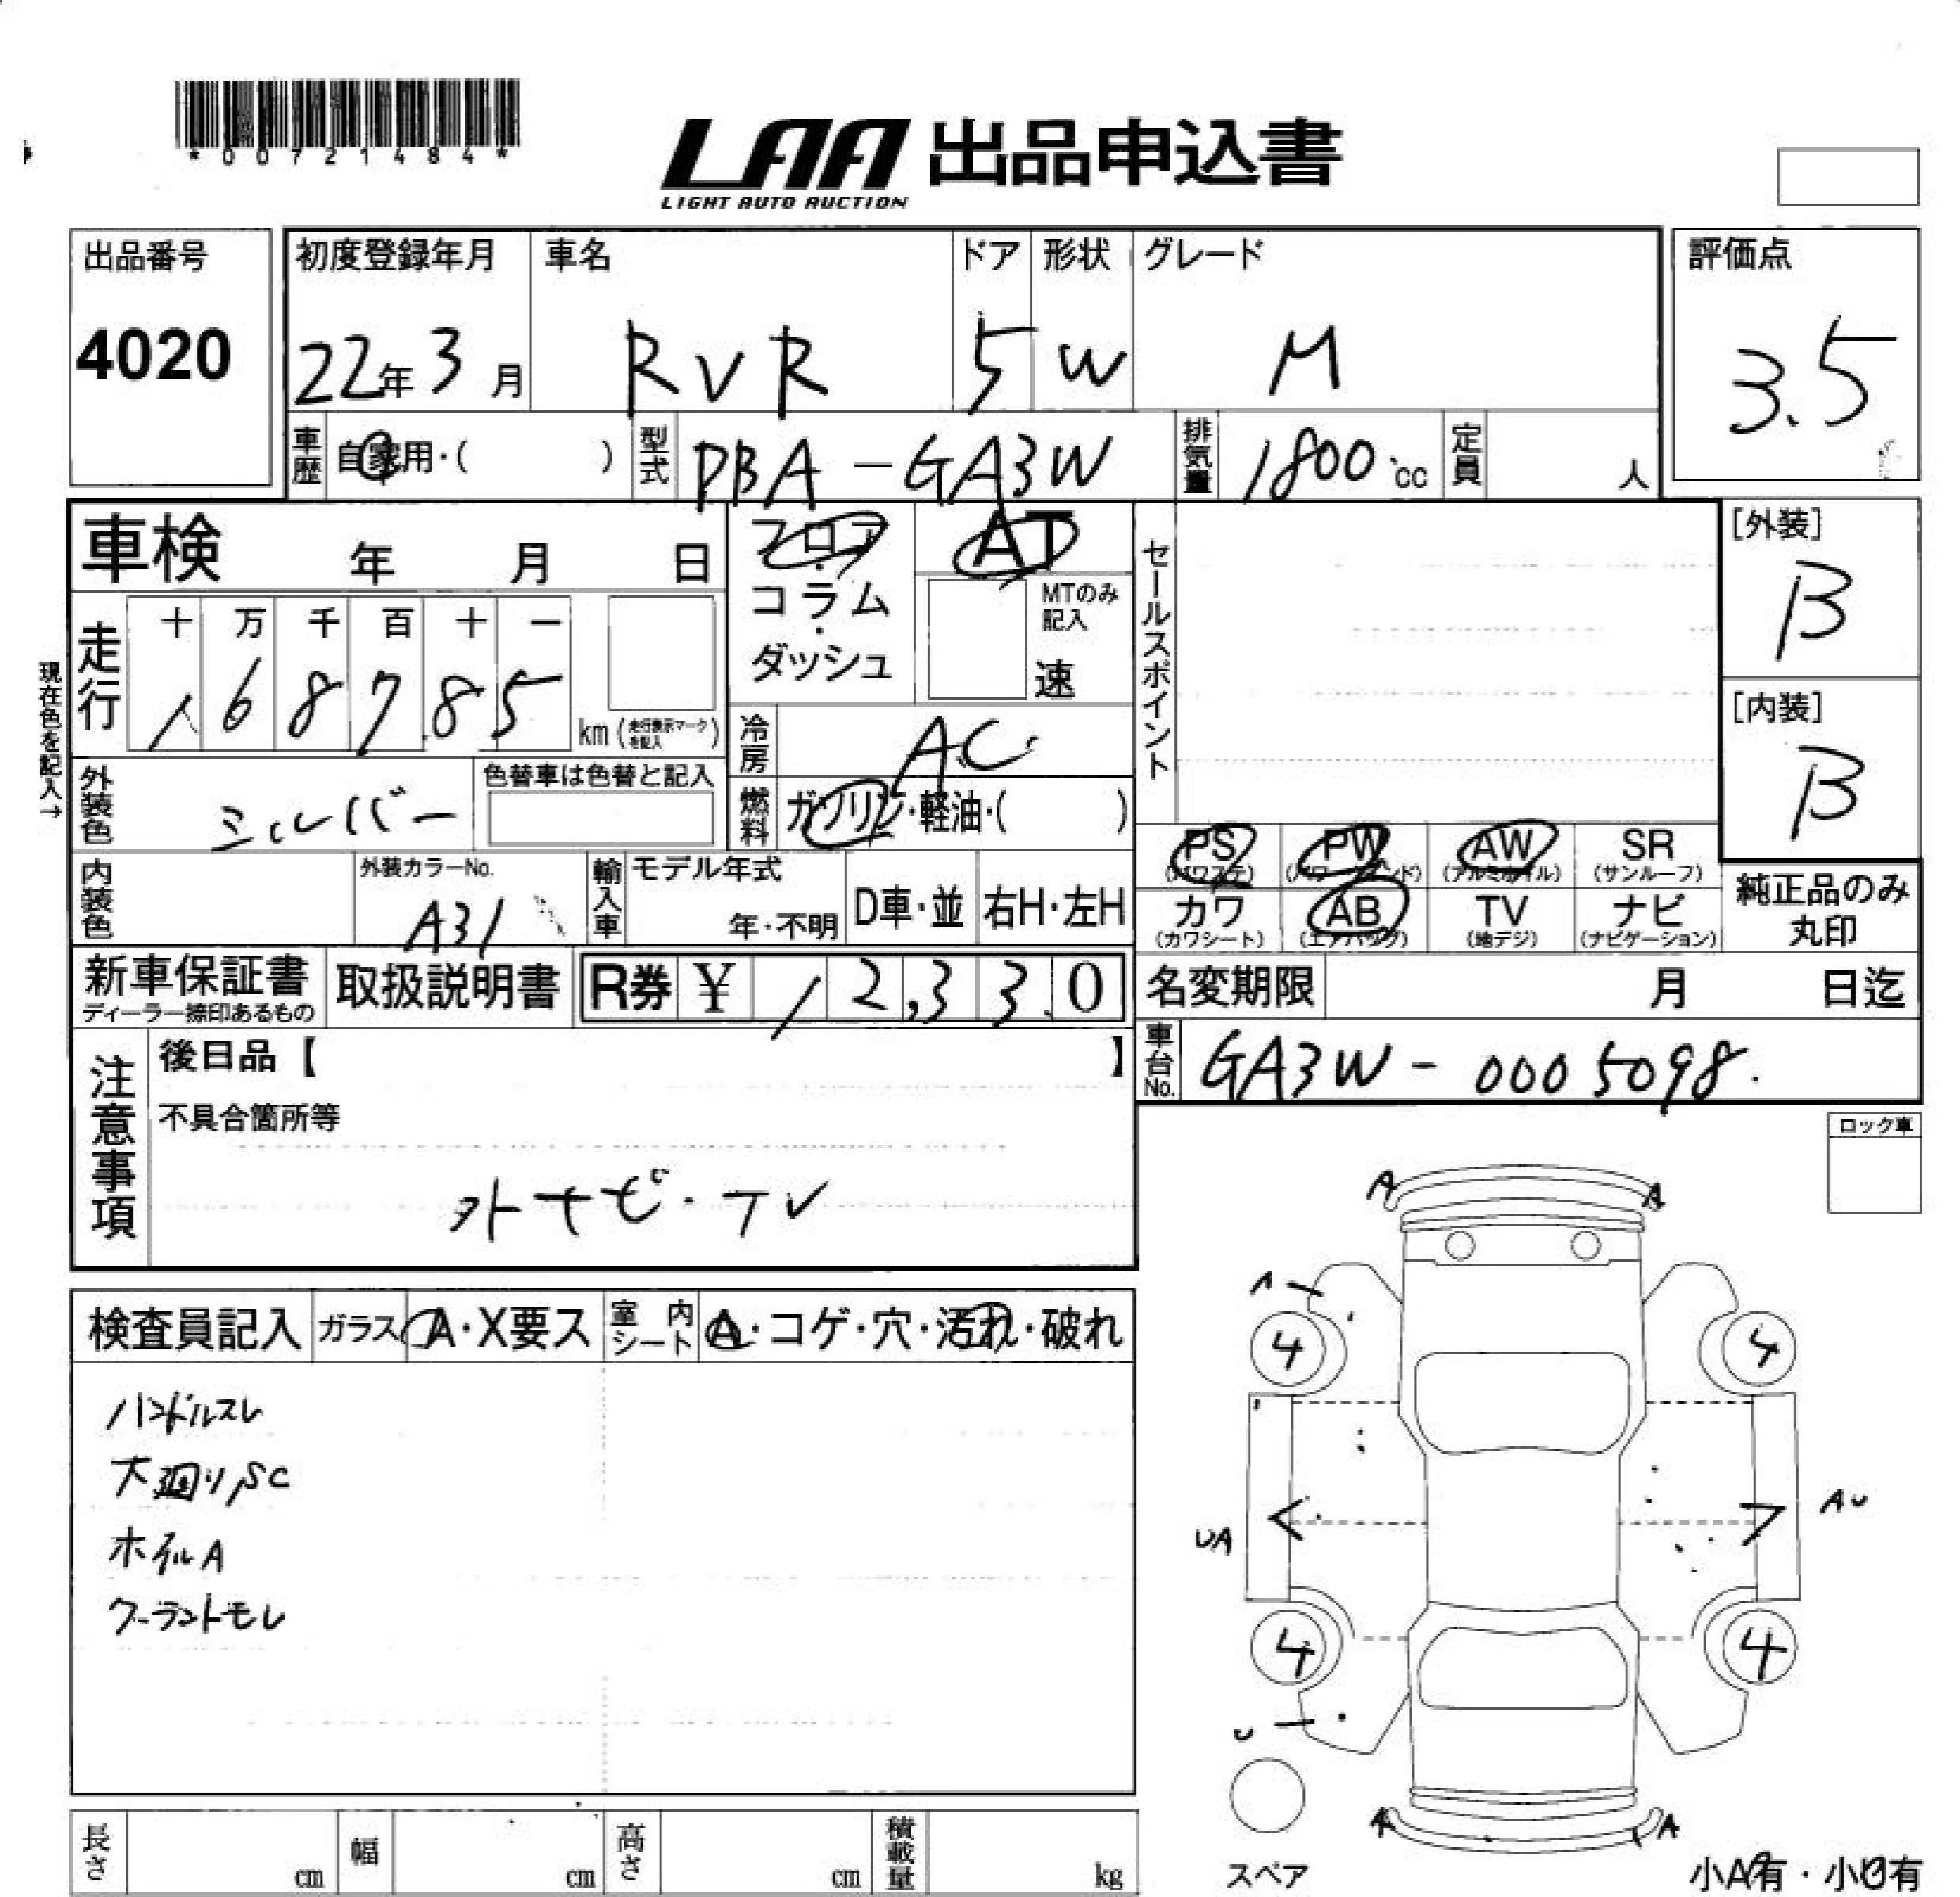 *00721484*
LAA 出品申込書
LIGHT AUTO AUCTION
出品番号
4020
初度登録年月
22年3月
車名
RVR
ドア
5
形状
W
グレード
M
評価点
3.5
車歴
自家用・( )
型式
DBA-GA3W
排気量
1800cc
定員
人
車検 年 月 日
フロア・コラム・ダッシュ
AT
MTのみ記入
速
セールスポイント
[外装]
B
[内装]
B
現在色を記入→
走行
十 万 千 百 十 一
1 6 8 7 8 5
km (走行表示マークを記入)
冷房
AC
外装色
シルバー
色替車は色替と記入
燃料
ガソリン・軽油・( )
内装色
外装カラーNo.
A31
輸入車
モデル年式
年・不明
D車・並
右H・左H
PS (パワステ)
PW (パワーウインド)
AW (アルミホイル)
SR (サンルーフ)
カワ (カワシート)
AB (エアバッグ)
TV (地デジ)
ナビ (ナビゲーション)
純正品のみ丸印
新車保証書
ディーラー捺印あるもの
取扱説明書
R券 ¥ 12,330
名変期限 月 日迄
車台No.
GA3W-0005098.
注意事項
後日品【 】
不具合箇所等
外ナビ・TV
ロック車
検査員記入
ガラス
A・X要ス
室内シート
A・コゲ・穴・汚れ・破れ
ハンドルスレ
大廻りSC
ホイルA
クーラントモレ
A A
A
4 4
UA AU
4 4
U
A A
スペア
小A有・小U有
長さ cm
幅 cm
高さ cm
積載量 kg